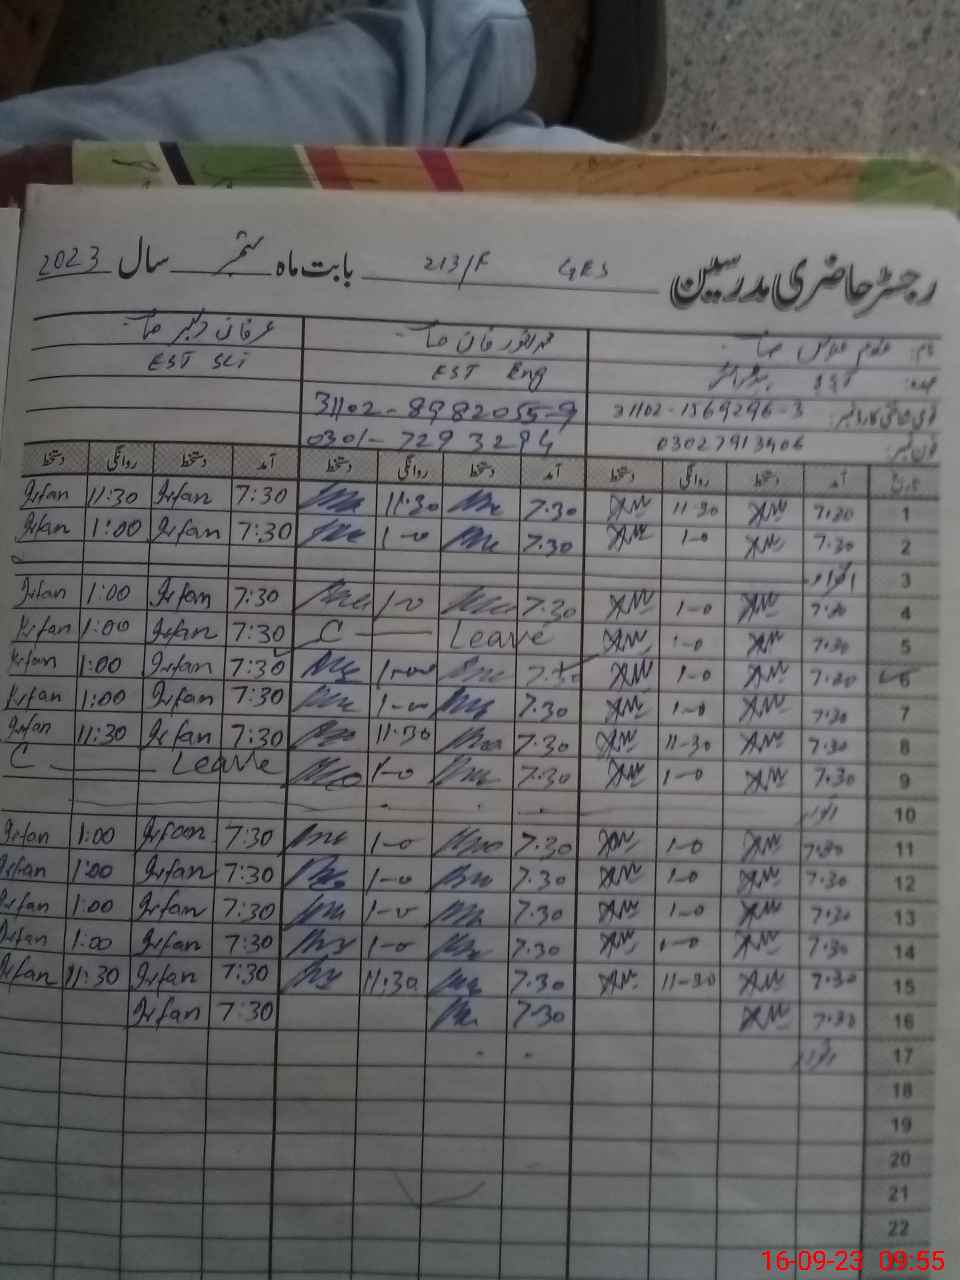 رجسٹر حاضری مدرسین GES 213/F بابت ماہ ستمبر سال 2023
نام: غلام عباس صاحب محمد ظفر خان صاحب عرفان دلبر صاحب
عہدہ: EST Eng EST Sci
قومی شناختی کارڈ نمبر: 31102-1569296-3 31102-8982055-9
فون نمبر: 03027913406 0301-7293294
تاریخ آمد دستخط روانگی دستخط آمد دستخط روانگی دستخط آمد دستخط روانگی دستخط
1 7.30 11-30 7.30 11.30 7:30 Irfan 11:30 Irfan
2 7.30 1-0 7.30 1-0 7:30 Irfan 1:00 Irfan
3 اتوار
4 7.30 1-0 7.30 1-0 7:30 Irfan 1:00 Irfan
5 7.30 1-0 C Leave 7:30 Irfan 1:00 Irfan
6 7.30 1-0 7.30 1-00 7:30 Irfan 1:00 Irfan
7 7.30 1-0 7.30 1-0 7:30 Irfan 1:00 Irfan
8 7.30 11-30 7.30 11.30 7:30 Irfan 11:30 Irfan
9 7.30 1-0 7.30 1-0 C Leave
10 اتوار
11 7.30 1-0 7.30 1-0 7:30 Irfan 1:00 Irfan
12 7.30 1-0 7.30 1-0 7:30 Irfan 1:00 Irfan
13 7.30 1-0 7.30 1-0 7:30 Irfan 1:00 Irfan
14 7.30 1-0 7.30 1-0 7:30 Irfan 1:00 Irfan
15 7.30 11-30 7.30 11.30 7:30 Irfan 11:30 Irfan
16 7.30 7.30 7:30 Irfan
17 اتوار
18
19
20
21
22
16-09-23 09:55